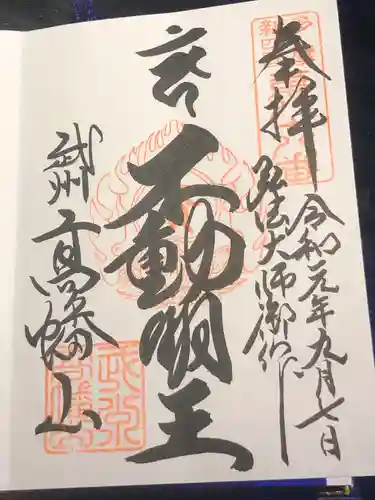 奉拝
令和元年九月七日
弘法大師御作
不動明王
武州
高幡山